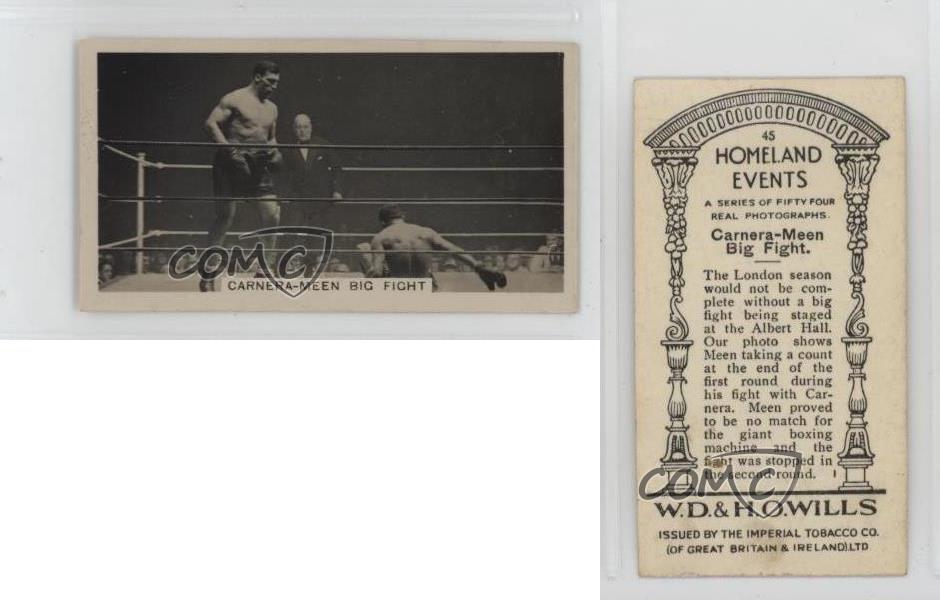 CARNERA-MEEN BIG FIGHT
COMC
45
HOMELAND
EVENTS
A SERIES OF FIFTY FOUR
REAL PHOTOGRAPHS.
Carnera-Meen
Big Fight.
The London season
would not be com-
plete without a big
fight being staged
at the Albert Hall.
Our photo shows
Meen taking a count
at the end of the
first round during
his fight with Car-
nera. Meen proved
to be no match for
the giant boxing
machine and the
fight was stopped in
the second round.
COMC
W.D. & H.O. WILLS
ISSUED BY THE IMPERIAL TOBACCO CO.
(OF GREAT BRITAIN & IRELAND), LTD